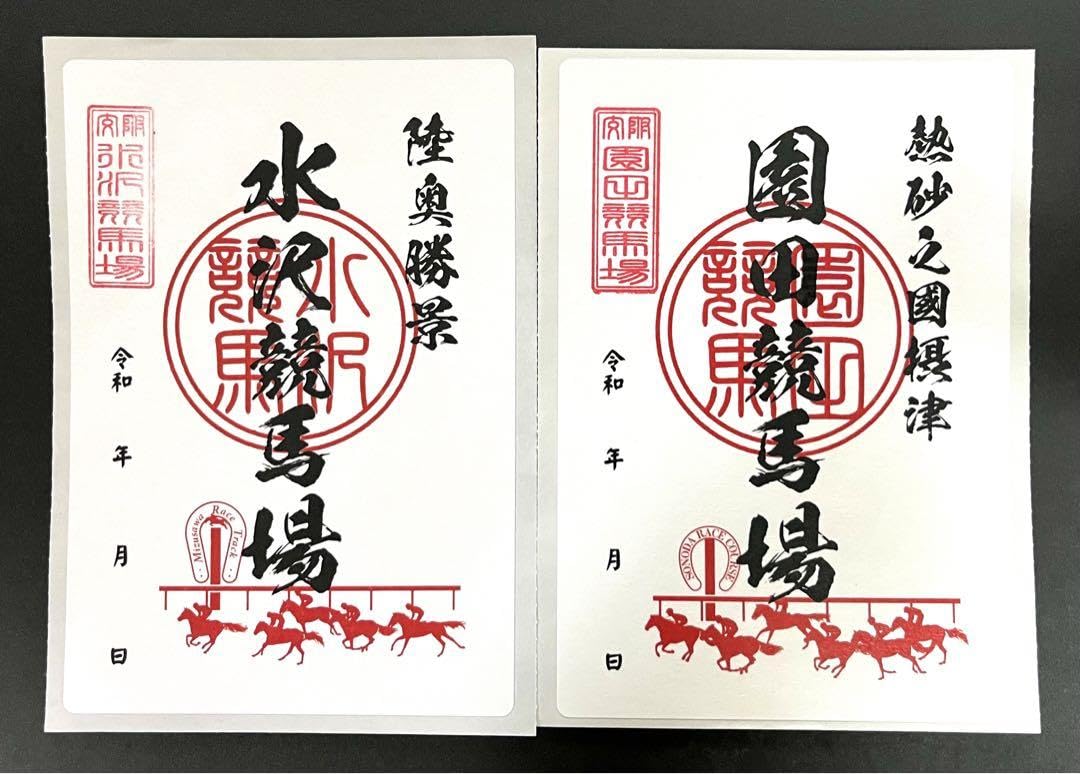 陸奥勝景
水沢競馬場
水沢
競馬
水沢競馬場
令和 年 月 日
Mizusawa Race Track
熱砂之國摂津
園田競馬場
園田
競馬
園田競馬場
令和 年 月 日
SONODA RACE COURSE